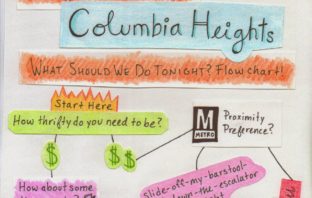 Columbia Heights
What Should We Do Tonight? Flow chart!
Start Here
How thrifty do you need to be?
$
$ $
M
METRO
Proximity
Preference?
How about some
Slide-off-my-barstool-
down-the-escalator